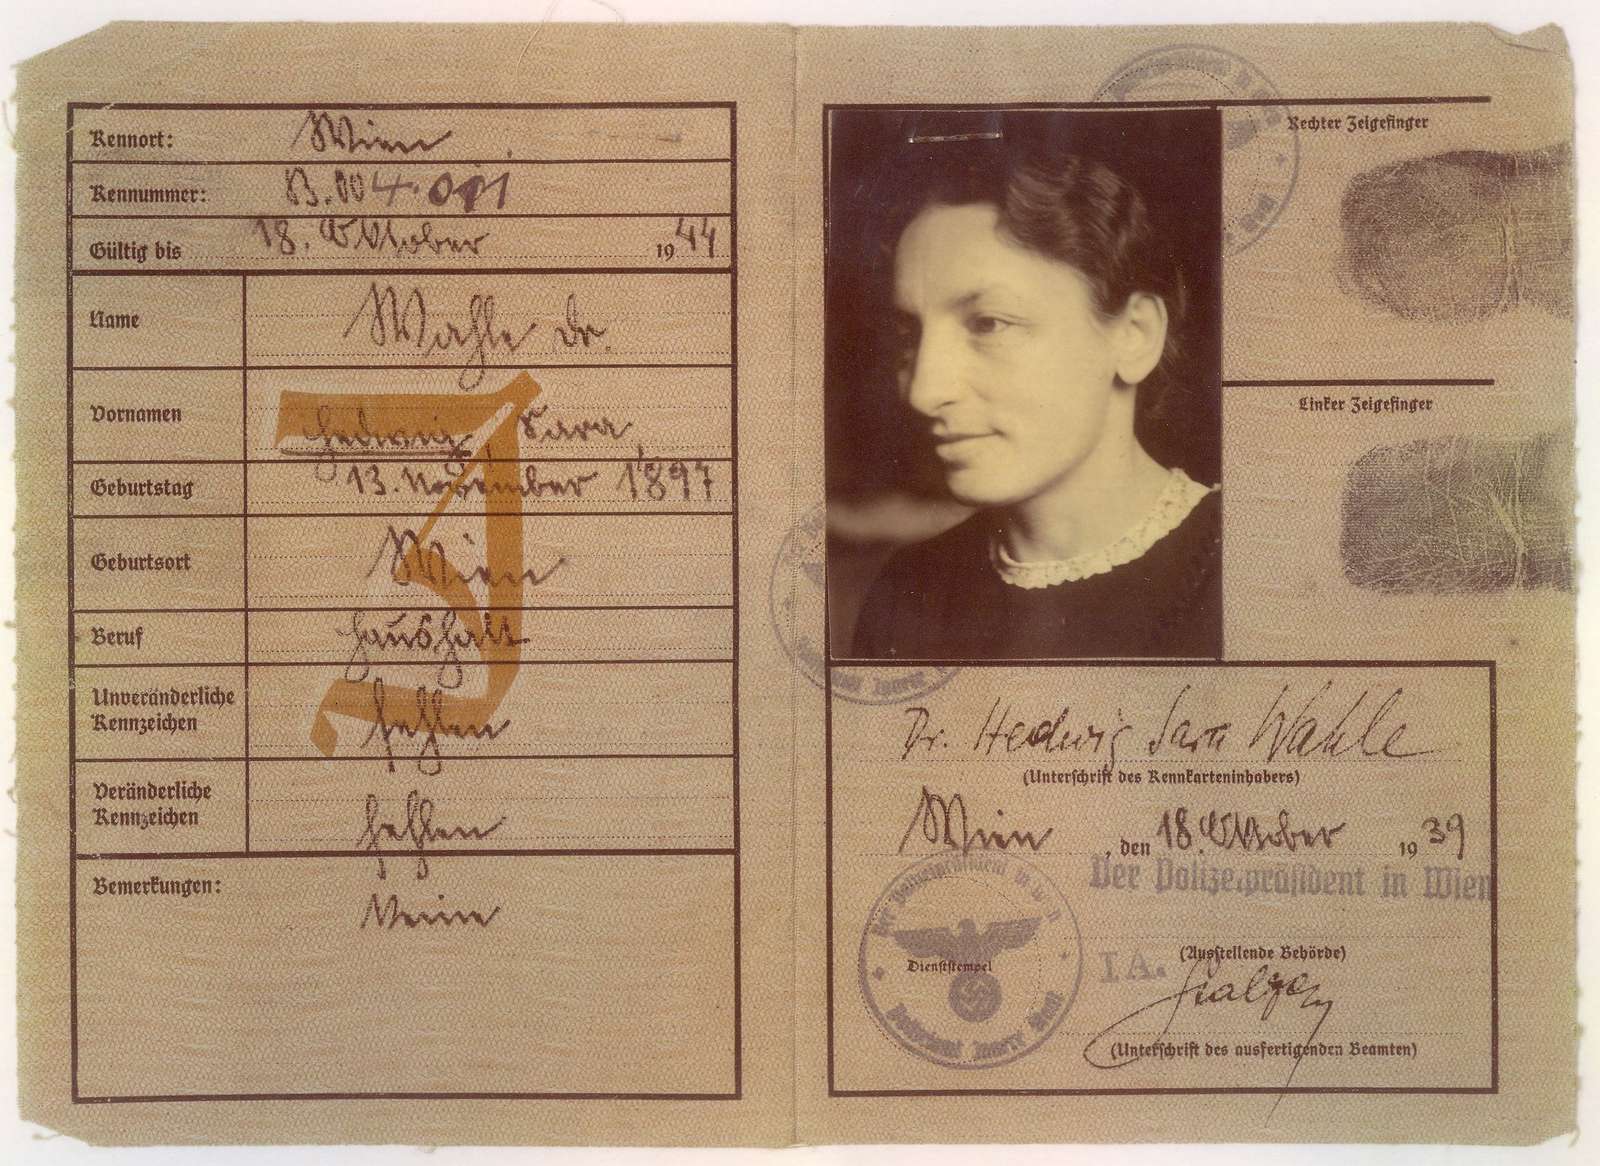 Kennort: Wien
Kennummer: B.004.
Gültig bis 18. Oktober 1944
Name Wahle Dr.
Vornamen Hedwig Sara,
Geburtstag 13. November 1897
Geburtsort Wien
Beruf Haushalt
Unveränderliche
Kennzeichen fehlen
Veränderliche
Kennzeichen fehlen
Bemerkungen:
Keine
J
Rechter Zeigefinger
Linker Zeigefinger
Dr. Hedwig Sara Wahle
(Unterschrift des Kennkarteninhabers)
Wien, den 18. Oktober 1939
Der Polizeipräsident in Wien
(Ausstellende Behörde)
I A.
(Unterschrift des ausfertigenden Beamten)
Der Polizeipräsident in Wien
Dienststempel
Polizeiamt Innere Stadt